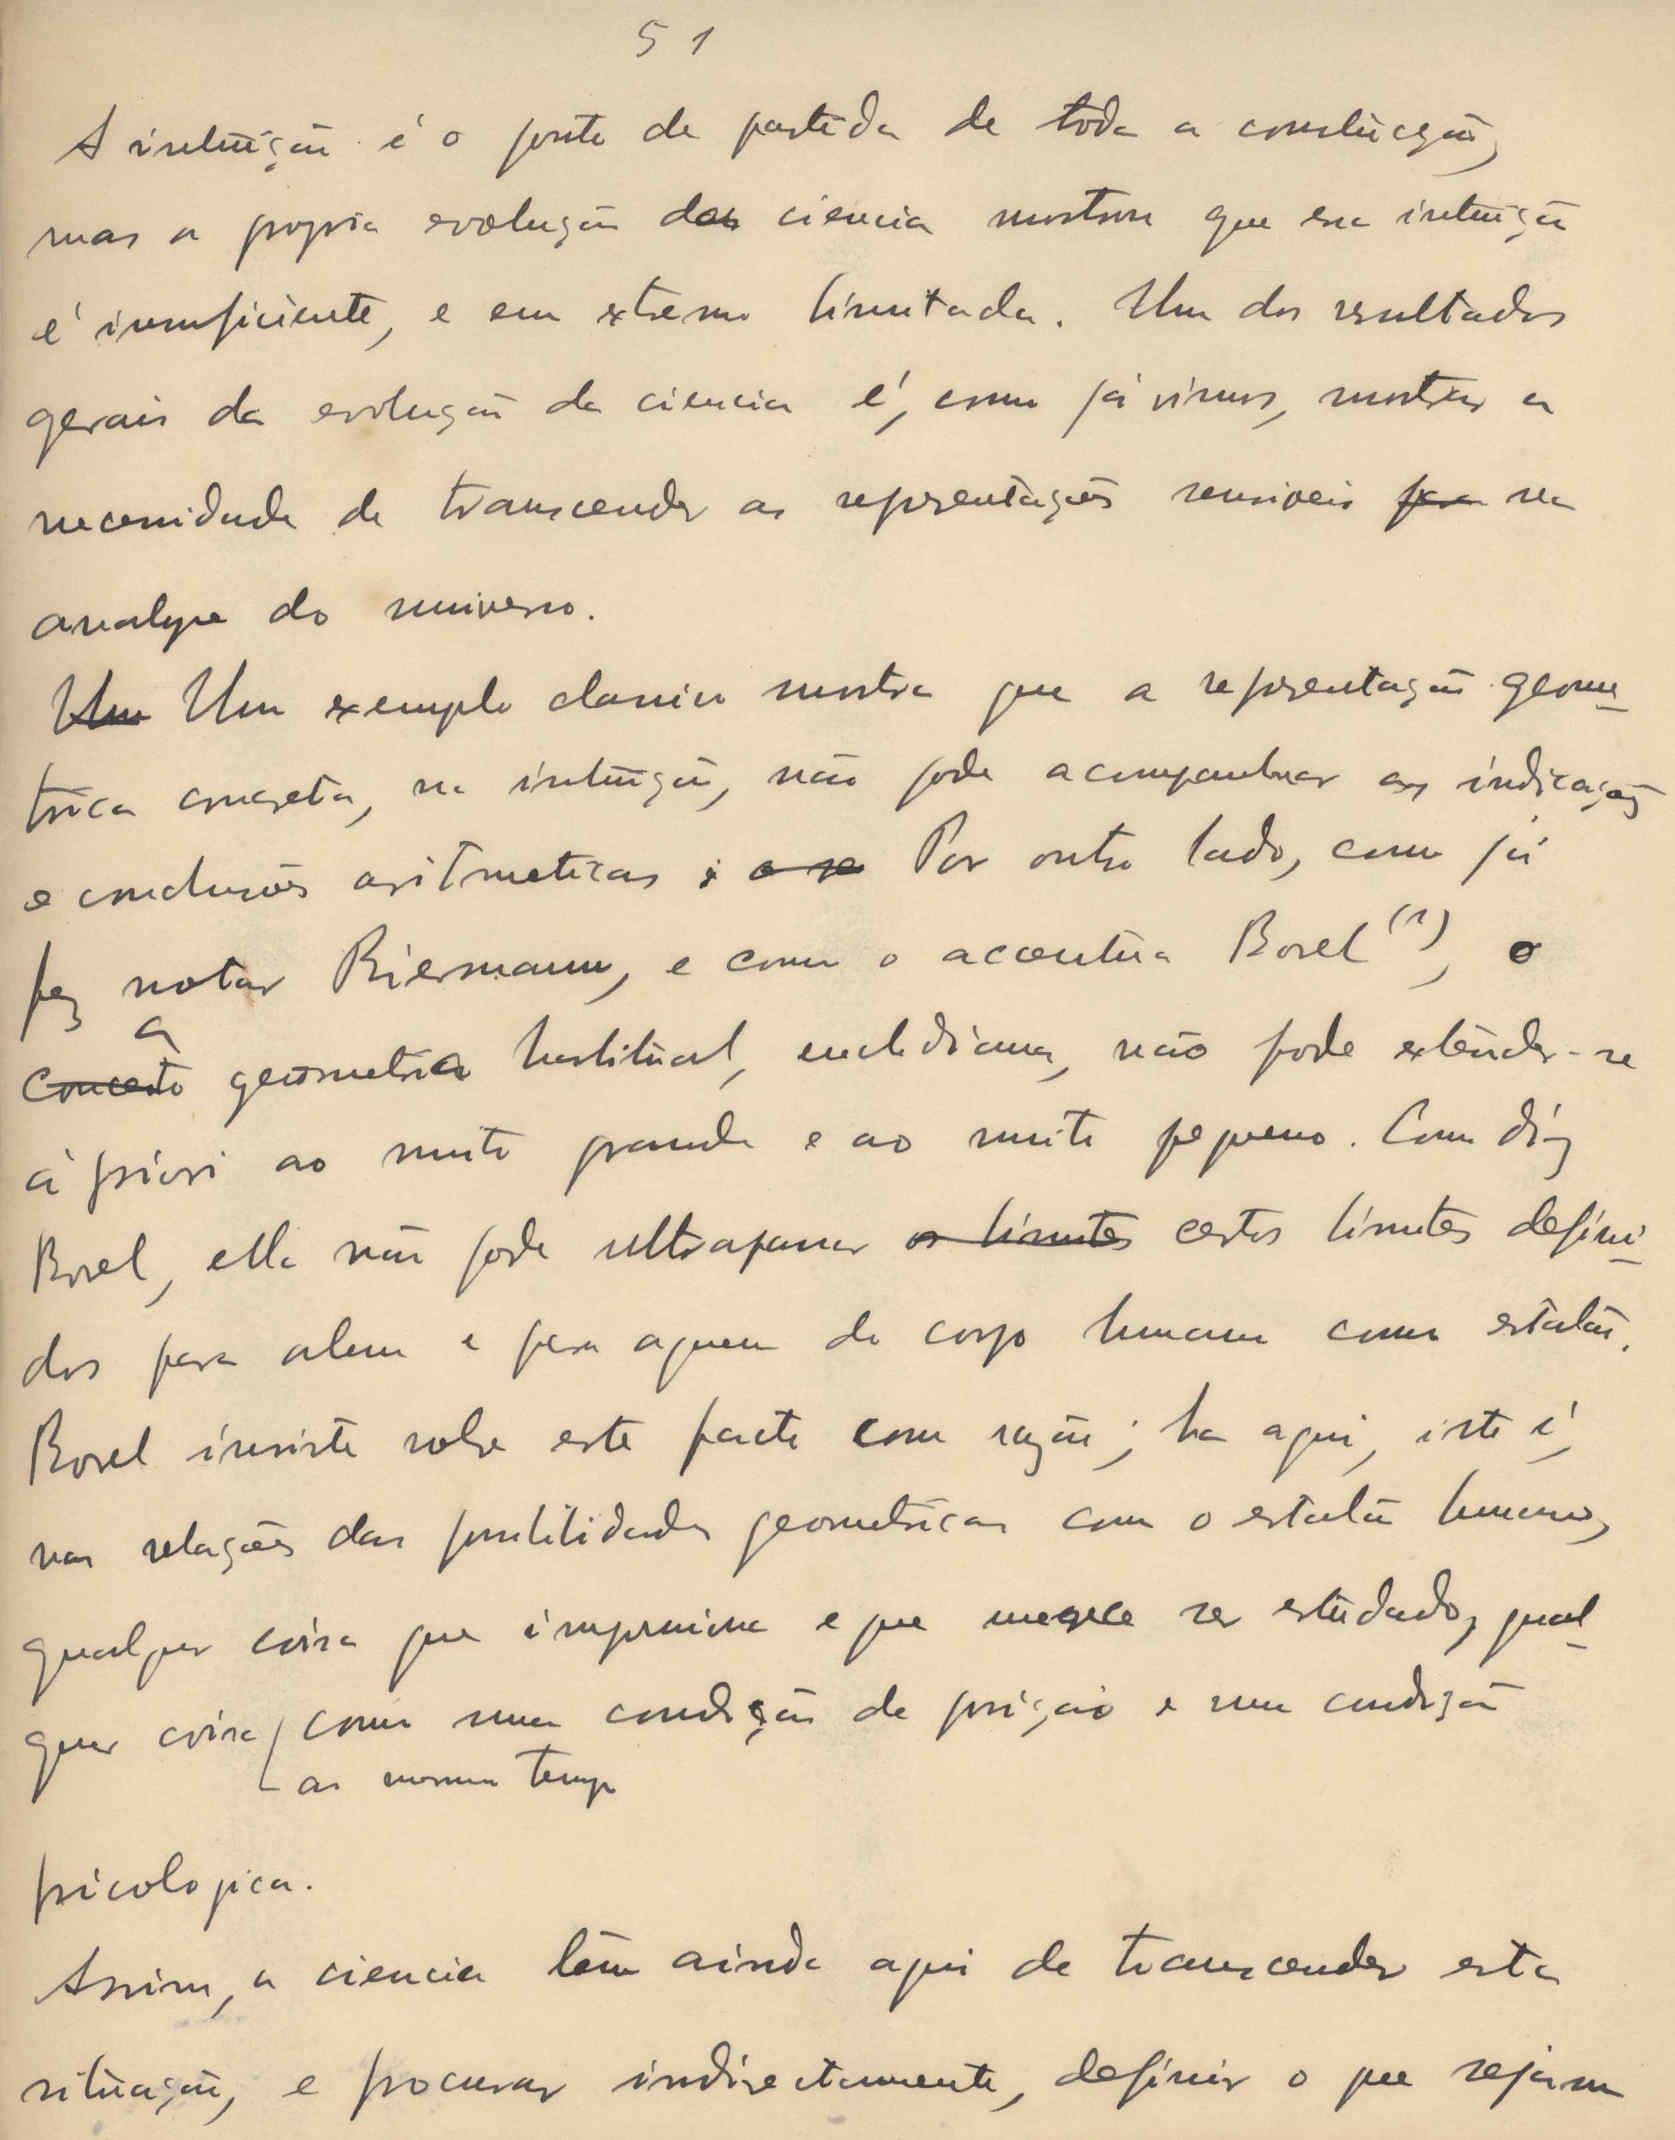 51
A intuição é o ponto de partida de toda a construcção,
mas a propria evolução da ciencia mostrou que essa intuição
é insuficiente, e em extremo limitada. Um dos resultados
gerais da evolução da ciencia é, como já vimos, mostrar a
necessidade de transcender as representações sensiveis para na
analyse do universo.
Um Um exemplo classico mostra que a representação geome-
trica concreta, na intuição, não pode acompanhar as indicações
e conclusões aritmeticas; e se Por outro lado, como já
fez notar Riermann, e como o accentúa Borel (1), o
a
conceito geometria habitual, euclidiana, não pode extender-se
à priori ao muito grande e ao muito pequeno. Como diz
Borel, ella não pode ultrapassar os limites certos limites defini-
dos para alem e para aquem do corpo humano como estalão.
Borel insiste sobre este facto com razão; ha aqui, isto é,
nas relações das possibilidades geometricas com o estalão humano,
qualquer coisa que impressiona e que merece ser estudado, qual-
quer coisa como uma condição de posição e uma condição
ao mesmo tempo
psicologica.
Assim, a ciencia têm ainda aqui de transcender esta
situação, e procurar indirectamente, definir o que sejam